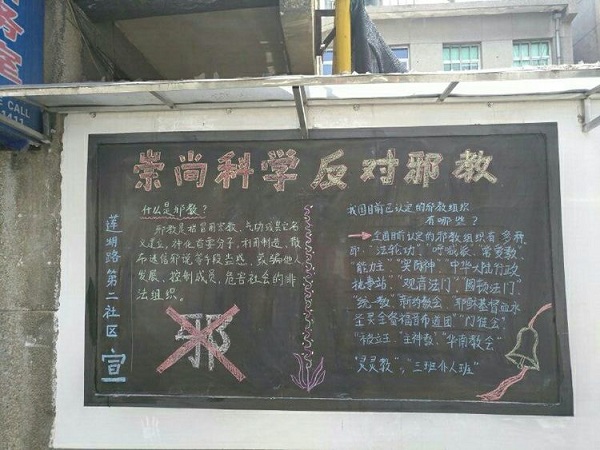 务室
CALL
1411
崇尚科学反对邪教
什么是邪教?
邪教是指冒用宗教、气功或其它名
义建立,神化首要分子,利用制造、散
布迷信邪说等手段蛊惑、蒙骗他人
发展、控制成员,危害社会的非
法组织。
邪
莲湖路第二社区·宣
我国目前已认定的邪教组织
有哪些?
全国目前认定的邪教组织有多种
即:"法轮功"、"呼喊派、常受教、
能力主"、"实际神"、中华大陆行政
执事站"、"观音法门、"圆顿法门"
"统一教"、新约教会、耶稣基督血水
圣灵全备福音布道团"门徒会"
主神教"、"华南教会"
"灵灵教"、"三班仆人派"